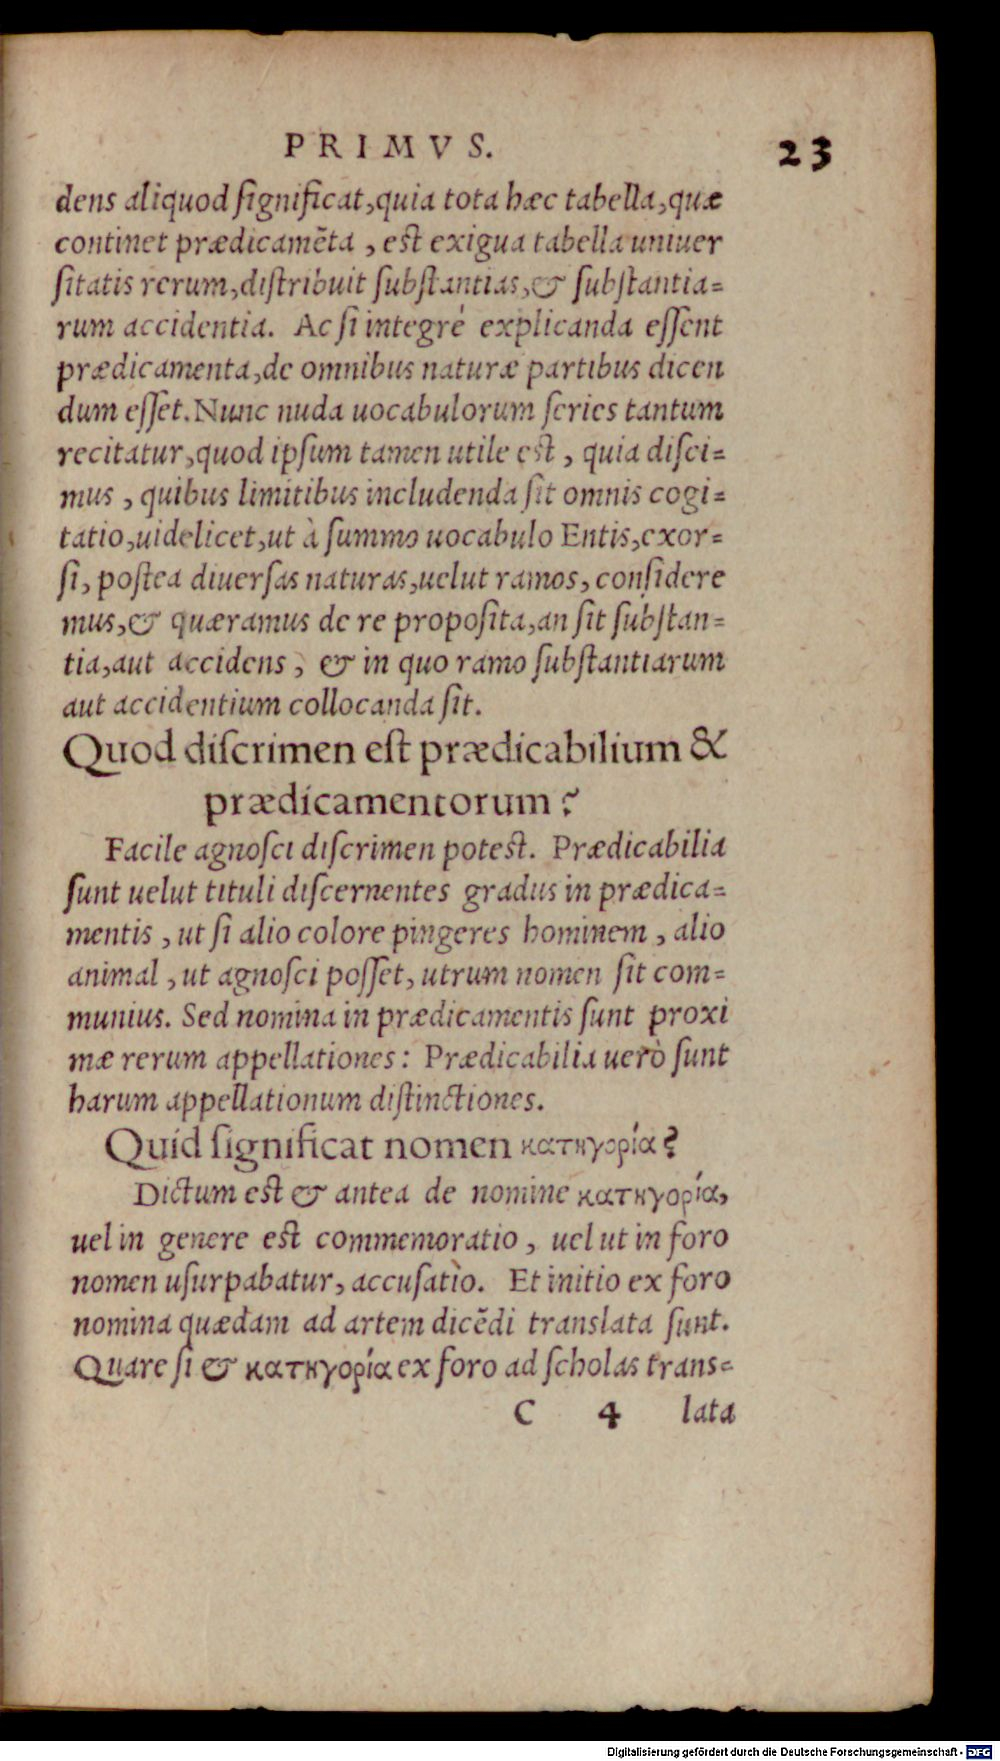 PRIMVS. 23
dens aliquod ſignificat,quia tota hæc tabella,quæ
continet prædicamẽta , eſt exigua tabella uniuer
ſitatis rerum,diſtribuit ſubſtantias,& ſubſtantia-
rum accidentia. Ac ſi integré explicanda eſſent
prædicamenta,de omnibus naturæ partibus dicen
dum eſſet.Nunc nuda uocabulorum ſeries tantum
recitatur,quod ipſum tamen utile eſt , quia diſci-
mus , quibus limitibus includenda ſit omnis cogi-
tatio,uidelicet,ut à ſummo uocabulo Entis,exor-
ſi, poſtea diuerſas naturas,uelut ramos, conſidere
mus,& quæramus de re propoſita,an ſit ſubſtan-
tia,aut accidens , & in quo ramo ſubſtantiarum
aut accidentium collocanda ſit.
Quod diſcrimen eſt prædicabilium &
prædicamentorum ?
Facile agnoſci diſcrimen poteſt. Prædicabilia
ſunt uelut tituli diſcernentes gradus in prædica-
mentis , ut ſi alio colore pingeres hominem , alio
animal , ut agnoſci poſſet, utrum nomen ſit com-
munius. Sed nomina in prædicamentis ſunt proxi
mæ rerum appellationes : Prædicabilia uerò ſunt
harum appellationum diſtinctiones.
Quid ſignificat nomen κατηγορία?
Dictum eſt & antea de nomine κατηγορία,
uel in genere eſt commemoratio , uel ut in foro
nomen uſurpabatur, accuſatio. Et initio ex foro
nomina quædam ad artem dicẽdi translata ſunt.
Quare ſi & κατηγορία ex foro ad ſcholas trans-
C 4 lata
Digitalisierung gefördert durch die Deutsche Forschungsgemeinschaft - DFG